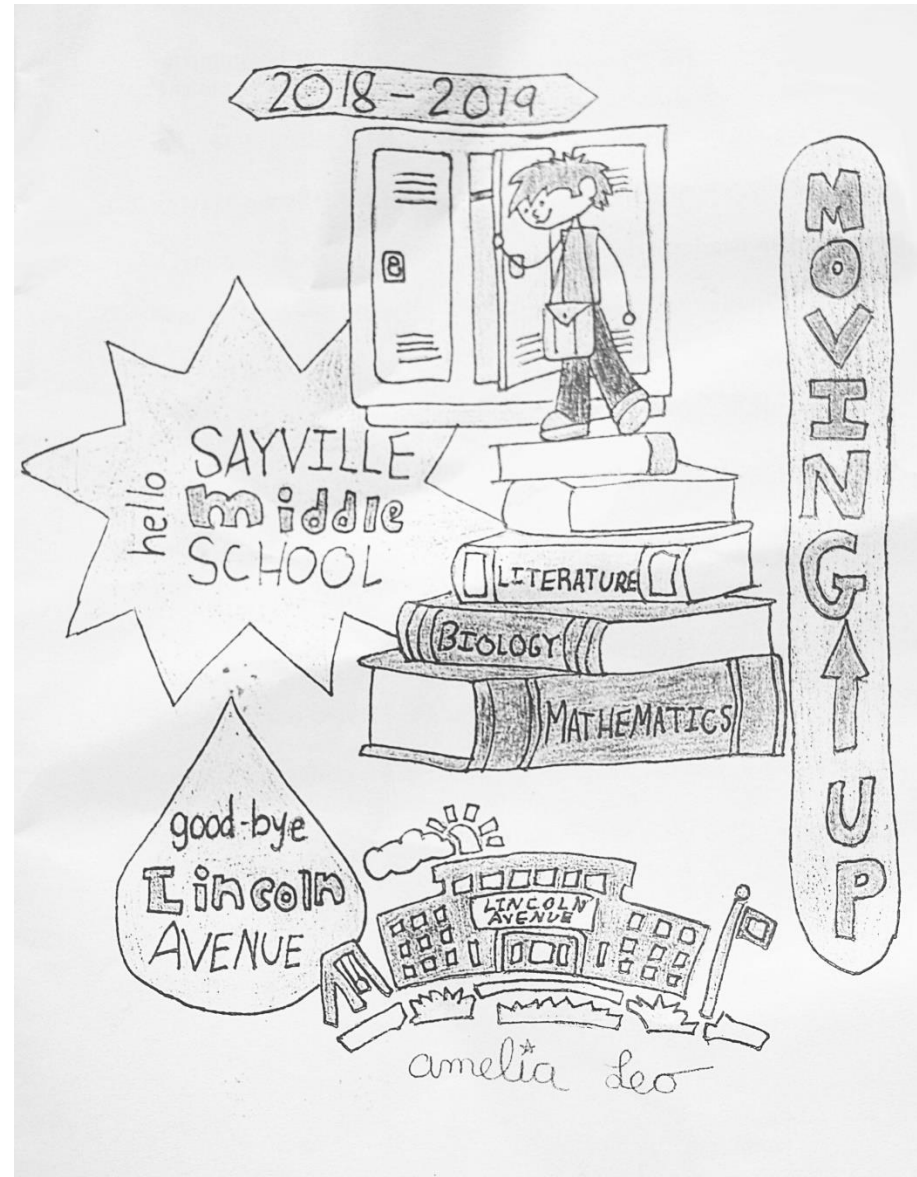 2018-2019
hello
SAYVILLE
middle
SCHOOL
LITERATURE
BIOLOGY
MATHEMATICS
MOVING UP
good-bye
Lincoln
AVENUE
LINCOLN
AVENUE
amelia Leo